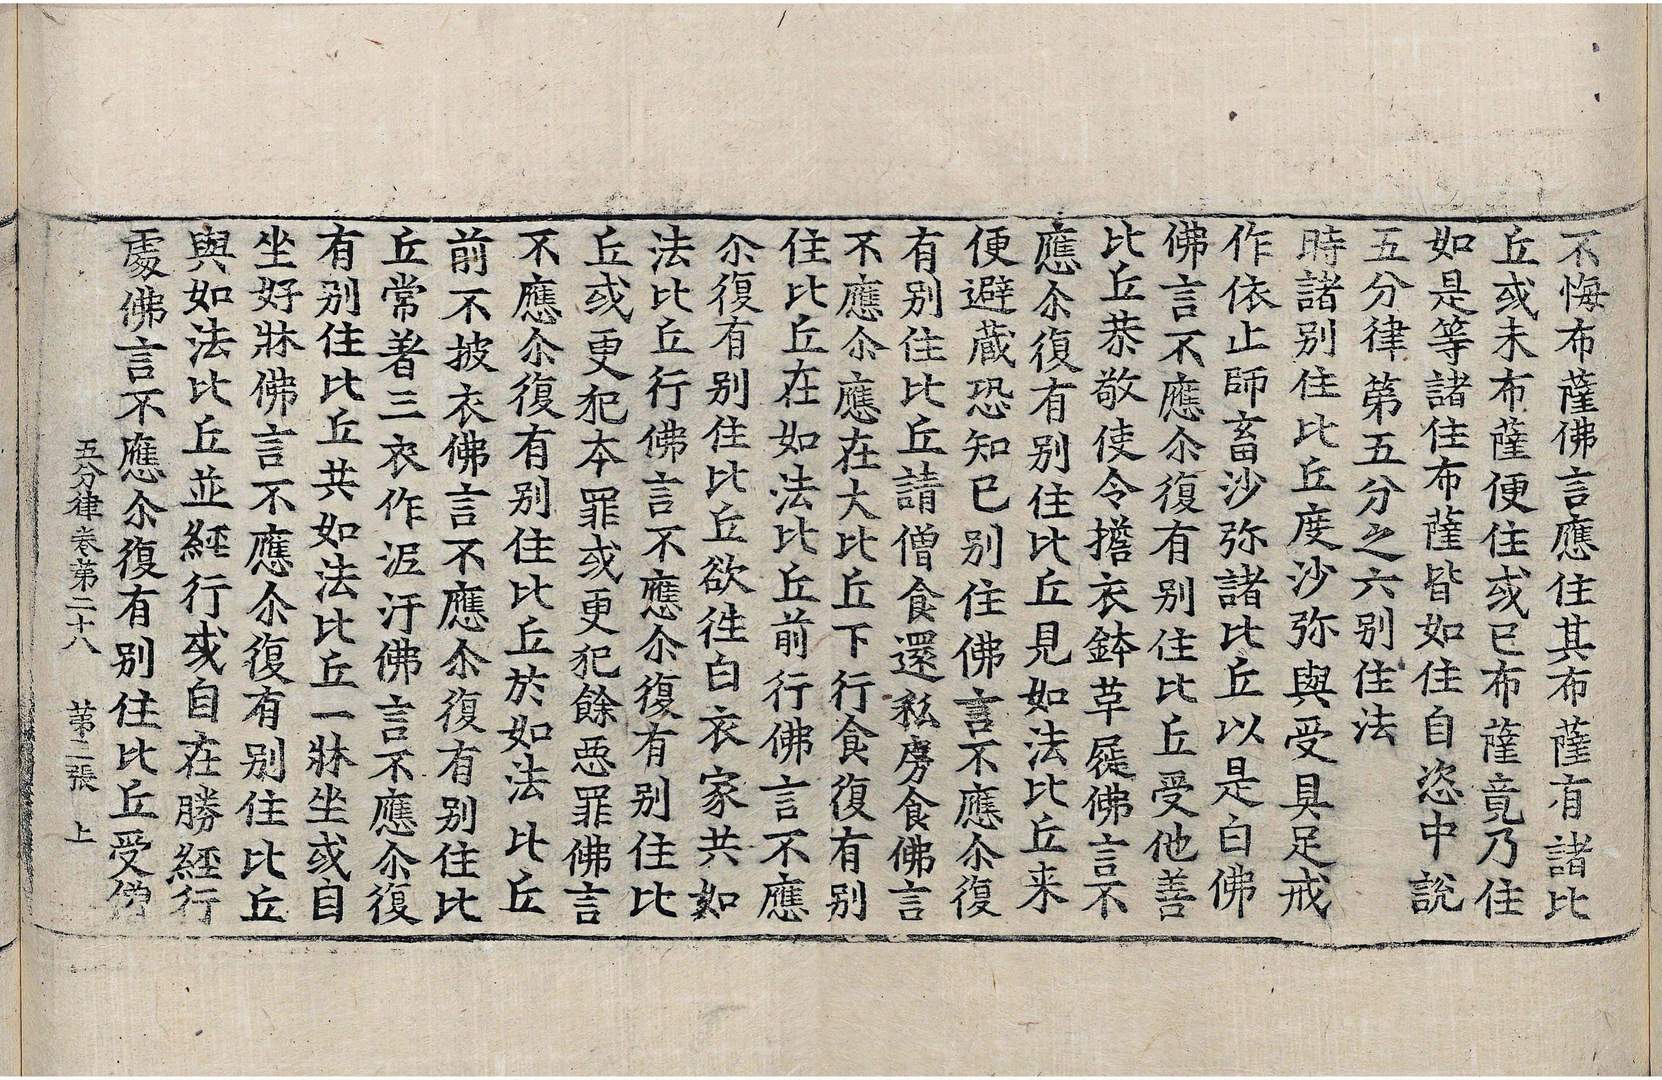 不悔布薩佛言應住其布薩有諸比
丘或未布薩便住或已布薩竟乃住
如是等諸住布薩皆如住自恣中說
五分律第五分之六別住法
時諸別住比丘度沙弥與受具足戒
作依止師畜沙弥諸比丘以是白佛
佛言不應尒復有別住比丘受他善
比丘恭敬使令擔衣鉢草屣佛言不
應尒復有別住比丘見如法比丘来
便避蔵恐知已別住佛言不應尒復
有別住比丘請僧食還私房食佛言
不應尒應在大比丘下行食復有別
住比丘在如法比丘前行佛言不應
尒復有別住比丘欲往白衣家共如
法比丘行佛言不應尒復有別住比
丘或更犯本罪或更犯餘惡罪佛言
不應尒復有別住比丘於如法比丘
前不披衣佛言不應尒復有別住比
丘常著三衣作泥汙佛言不應尒復
有別住比丘共如法比丘一牀坐或自
坐好牀佛言不應尒復有別住比丘
與如法比丘並經行或自在勝經行
處佛言不應尒復有別住比丘受僧
五分律卷第二十八　第二張　上